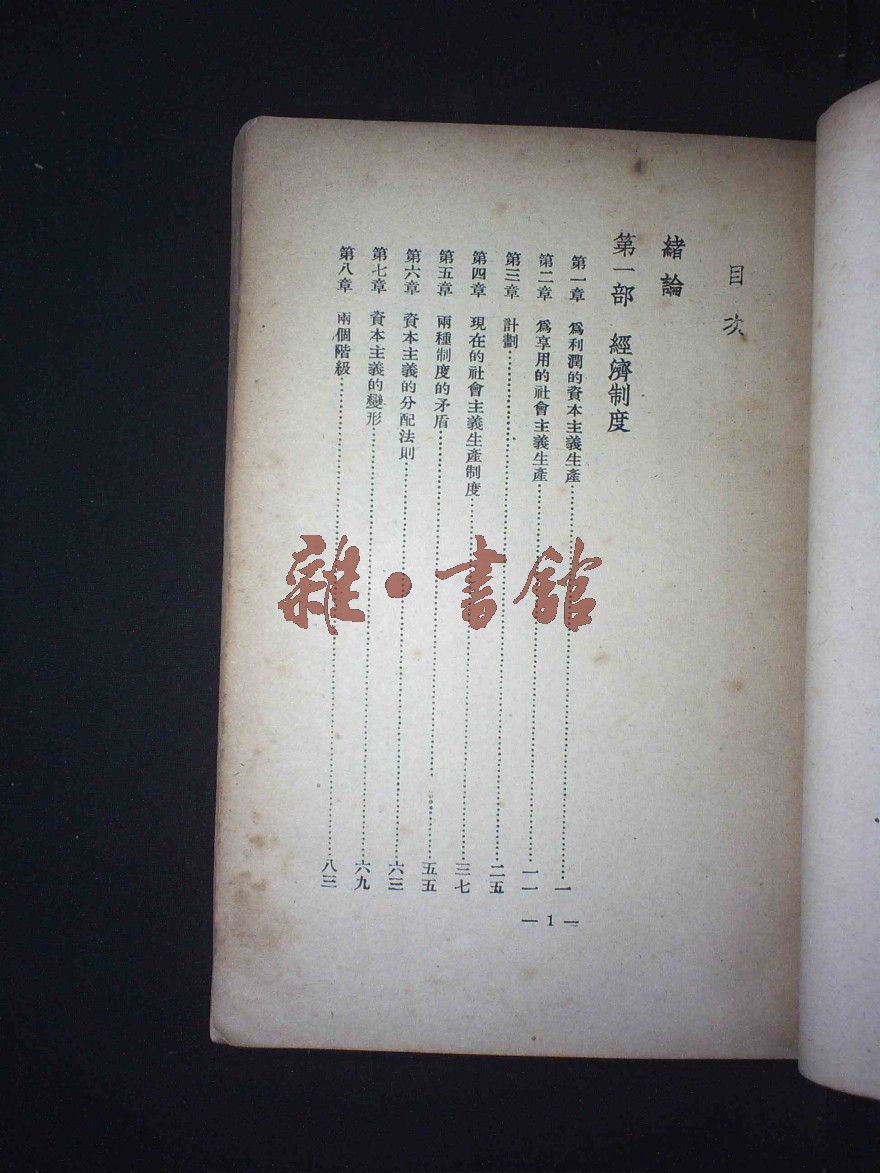 目次
緒論
第一部 經濟制度
第一章 爲利潤的資本主義生產……一
第二章 爲享用的社會主義生產……一一
第三章 計劃……二五
第四章 現在的社會主義生產制度……三七
第五章 兩種制度的矛盾……五五
第六章 資本主義的分配法則……六三
第七章 資本主義的變形……六九
第八章 兩個階級……八三
— 1 —
雜·書館